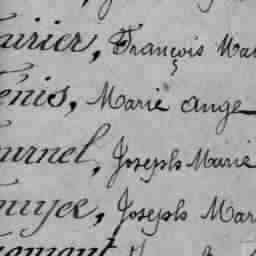 airier, François Mar
enis, Marie ange
urnel, Joseph Marie
uyer, Joseph Mar